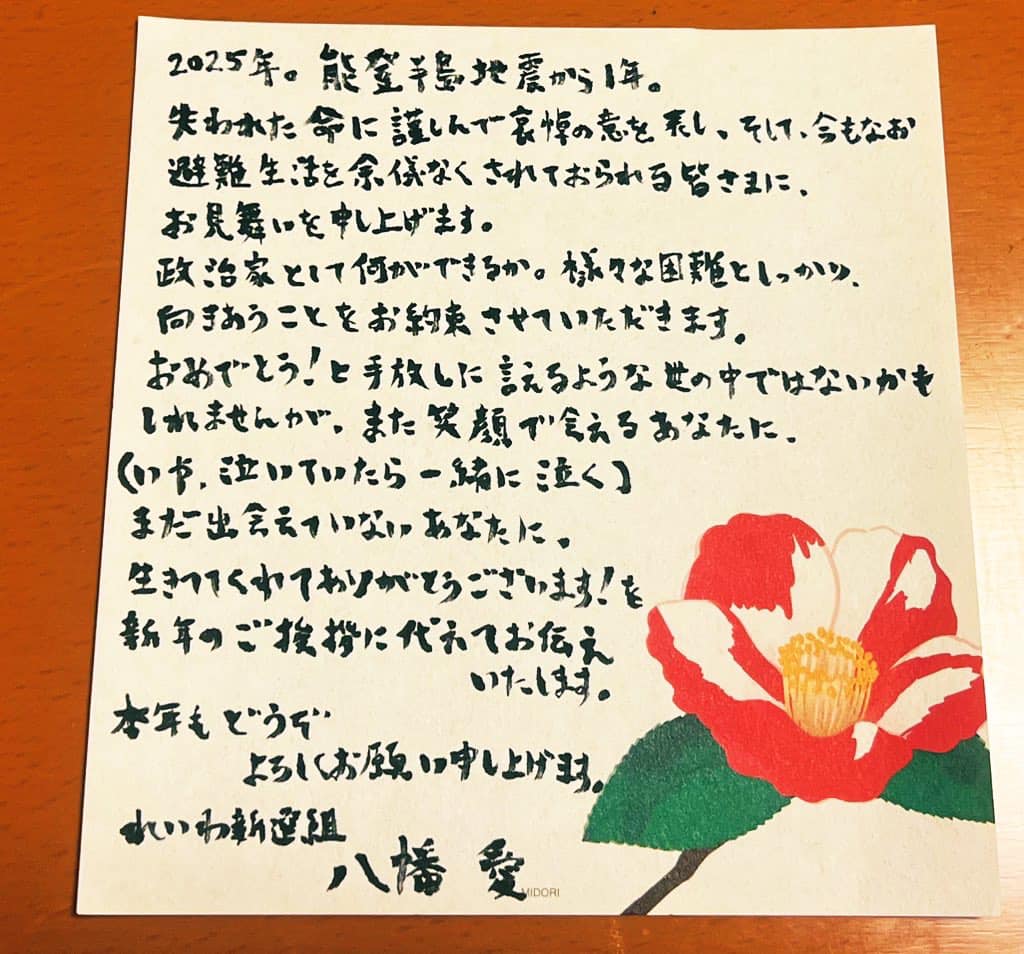 2025年。能登半島地震から1年。
失われた命に謹しんで哀悼の意を表し、そして、今もなお
避難生活を余儀なくされておられる皆さまに、
お見舞いを申し上げます。
政治家として何ができるか。様々な困難としっかり、
向きあうことをお約束させていただきます。
おめでとう!と手放しに言えるような世の中ではないかも
しれませんが、また笑顔で会えるあなたに、
(いや、泣いていたら一緒に泣く)
まだ出会えていないあなたに。
生きててくれてありがとうございます!を
新年のご挨拶に代えてお伝え
いたします。
本年もどうぞ
よろしくお願い申し上げます。
れいわ新選組
八幡 愛
MIDORI